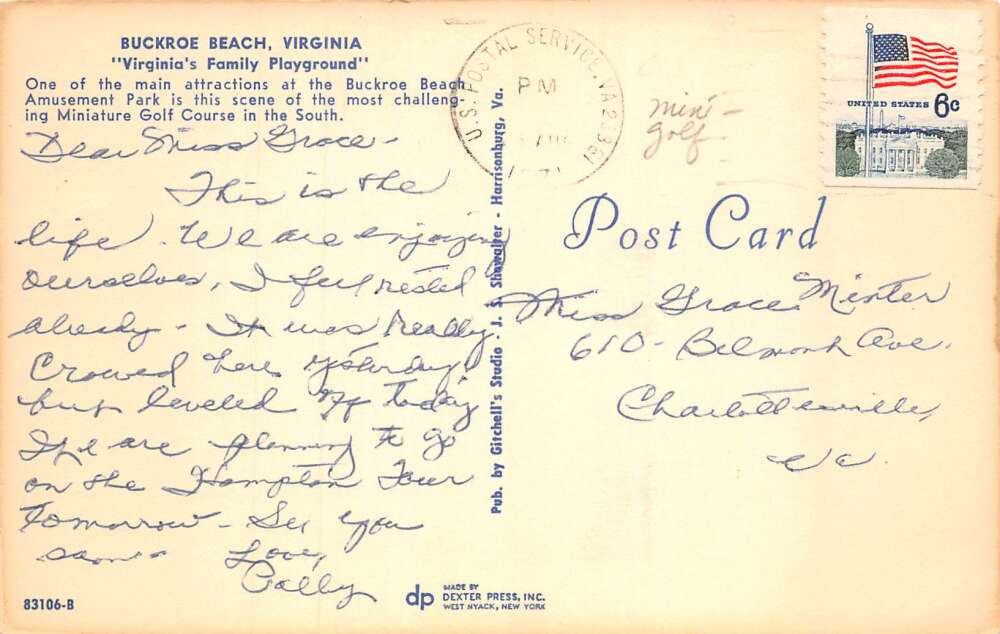 BUCKROE BEACH, VIRGINIA
"Virginia's Family Playground"
One of the main attractions at the Buckroe Beach
Amusement Park is this scene of the most challeng-
ing Miniature Golf Course in the South.
Dear Miss Grace-
This is the
life. We are enjoying
ourselves, I feel rested
already - It was really
Crowed here yesterday,
but leveled off today
We are planning to go
on the Hampton Tour
tomorrow - See you
soon - Love,
Polly
83106-B
Pub. by Gitchell's Studio - J. S. Showalter - Harrisonburg, Va.
dp
MADE BY
DEXTER PRESS, INC.
WEST NYACK, NEW YORK
U.S. POSTAL SERVICE, VA 23361
PM
mini-
golf
UNITED STATES 6c
Post Card
Miss Grace Minter
610 - Belmont Ave.
Charlottesville,
Va.